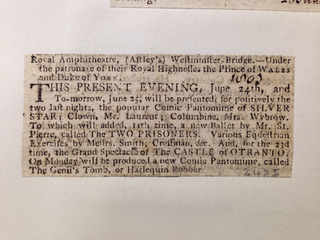 Royal Amphitheatre, (Astley's) Westminster-Bridge.—Under
the patronage of their Royal Highnesses the Prince of WALES
and Duke of YORK. 1803
THIS PRESENT EVENING, June 24th, and
To-morrow, June 25, will be presented, for positively the
two last nights, the popular Comic Pantomime of SILVER
STAR; Clown, Mr. Laurent; Columbine, Mrs. Wybrow.
To which will be added, 11th time, a new Ballet by Mr. St.
Pierre, called The TWO PRISONERS. Various Equestrian
Exercises by Messrs. Smith, Crossman, &c. And, for the 23d
time, the Grand Spectacle of The CASTLE of OTRANTO.
On Monday will be produced a new Comic Pantomime, called
The Genii's Tomb, or Harlequin Robber